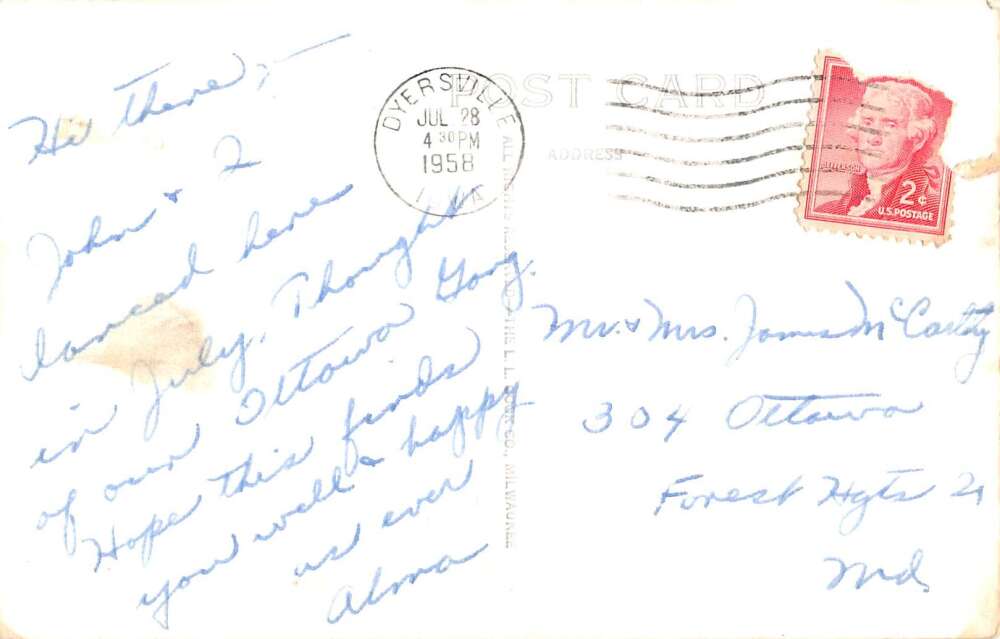 Hi there,-
John & I
danced here
in July. Thought
of our Ottawa Gang.
Hope this finds
you well & happy
as ever
Alma
POST CARD
ADDRESS
DYERSVILLE
JUL 28
4 30 PM
1958
IOWA
JEFFERSON
2¢
U.S. POSTAGE
THE L. L. COOK CO., MILWAUKEE
Mr. & Mrs. James McCarthy
304 Ottawa
Forest Hgts 21
Md.